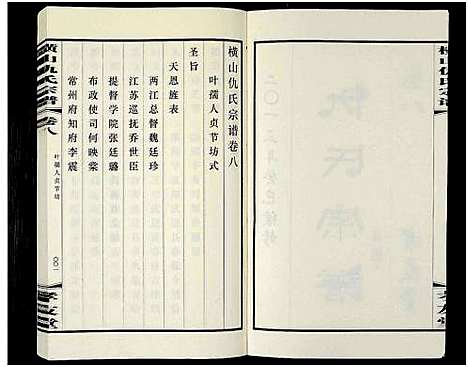 横山仇氏宗谱
横山仇氏宗谱卷八
叶孺人贞节坊式
圣旨
天恩旌表
两江总督魏廷珍
江苏巡抚乔世臣
提督学院张廷璐
布政使司何映棠
常州府知府李震
横山仇氏宗谱
卷八
叶孺人贞节坊
〇〇一
孝友堂
孝友堂